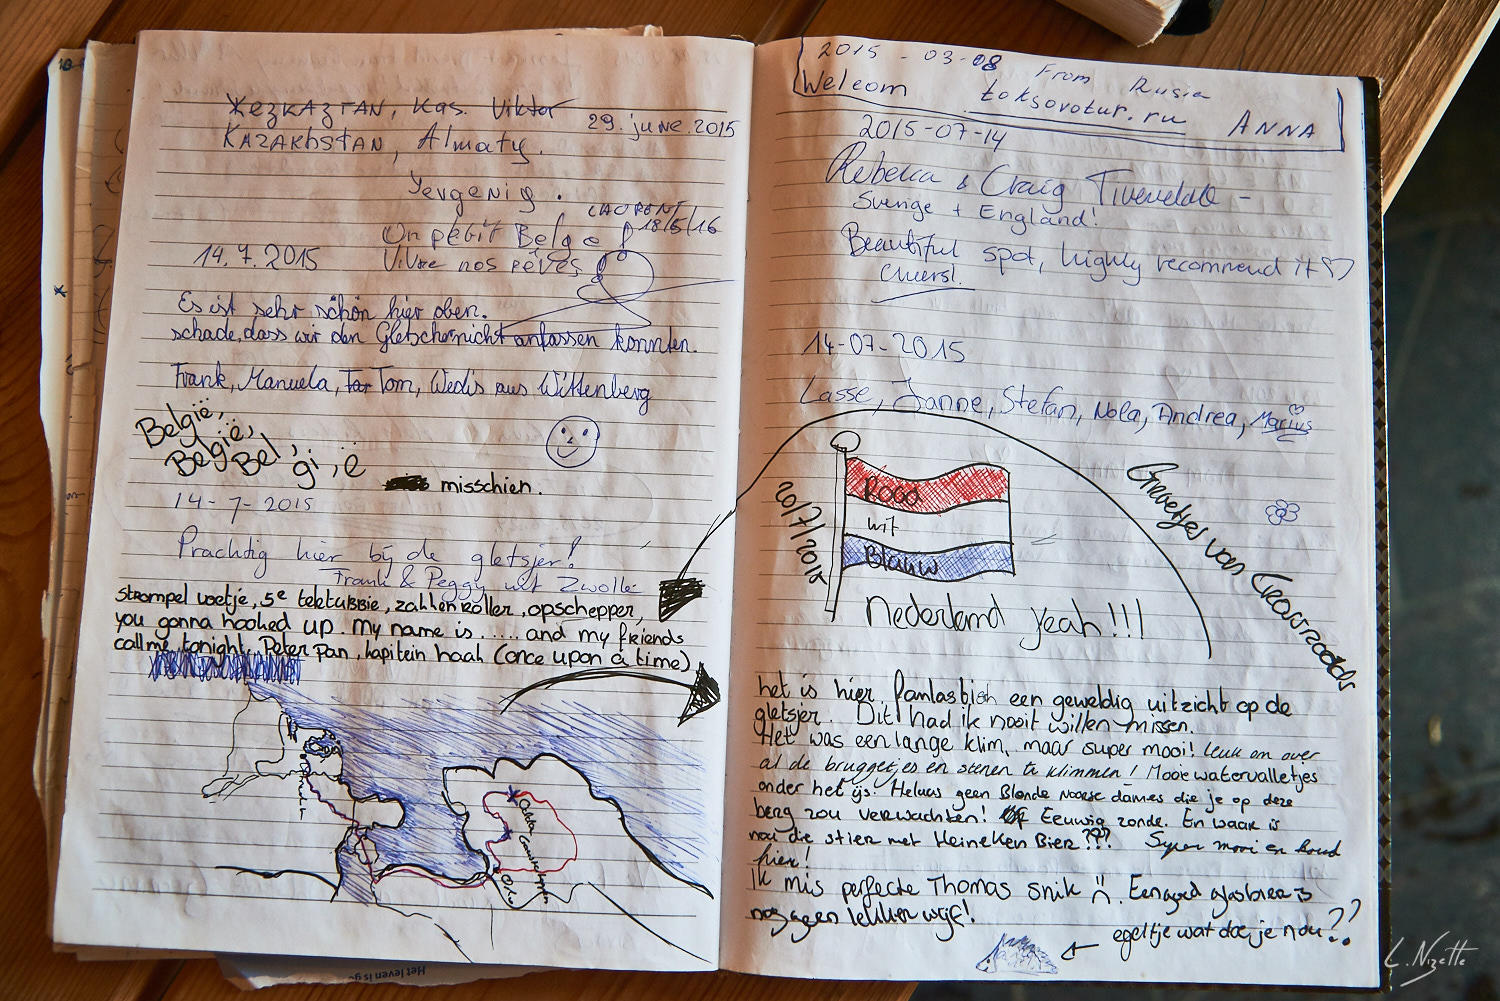 ЖЕЗКАЗГАН, Kas. Viktor
KAZAKhStAN, Almaty.
29. june. 2015
Yevgeniy.
LAURENT
18/5/16
Un petit Belge
Vivre nos rêves
14.7.2015
Es ist sehr schön hier oben.
schade, dass wir den Gletscher nicht anfassen konnten.
Frank, Manuela, Tom, Wedis aus Wittenberg
België,
België,
Bel, gi, ë
misschien.
14-7-2015
Prachtig hier bij de gletsjer!
Frank & Peggy uit Zwolle
strompel voetje, 5e teletubbie, zahlen roller, opschepper,
you gonna hooked up. my name is ..... and my friends
call me tonight. Peter Pan, kapitein haak (once upon a time)
Oslo
2015-03-08 From Rusia
Welcom toksovotur.ru ANNA
2015-07-14
Rebecca & Craig
Sverige + England!
Beautiful spot, highly recommend it
cheers!
14-07-2015
Lasse, Janne, Stefan, Nola, Andrea, Marius
20/7/2015
Rood
wit
Blauw
Nederland yeah!!!
Groetjes van Crossroads
het is hier fantastisch een geweldig uitzicht op de
gletsjer. Dit had ik nooit willen missen.
Het was een lange klim, maar super mooi! leuk om over
al de bruggetjes en stenen te klimmen! Mooie watervalletjes
onder het ijs. Helaas geen Blonde Noorse dames die je op deze
berg zou verwachten! Eeuwig zonde. En waar is
nou die stier met Heineken Bier??? Super mooi en koud
hier!
Ik mis perfecte Thomas snik :(. Een goed glas bier is
nog geen lekker wijf!
egeltje wat doe je nou??
Het leven is
L. Nizette